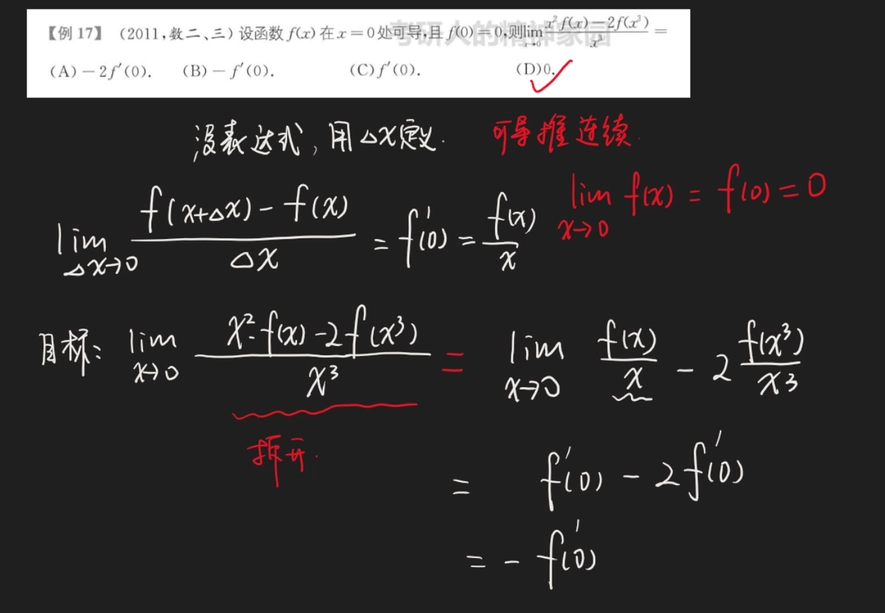 【例 17】 (2011,数二、三) 设函数 f(x) 在 x=0 处可导,且 f(0)=0,则 lim_{x→0} (x²f(x)-2f(x³))/x³ =
(A) -2f′(0). (B) -f′(0). (C) f′(0). (D) 0. ✓
考研人的精神家园
没表达式, 用△x定义. 可导推连续
lim_{△x→0} (f(x+△x)-f(x))/△x = f′(0) = f(x)/x
lim_{x→0} f(x) = f(0) = 0
目标: lim_{x→0} (x²·f(x)-2f(x³))/x³ = lim_{x→0} f(x)/x - 2 f(x³)/x³
拆开.
= f′(0) - 2f′(0)
= - f′(0)